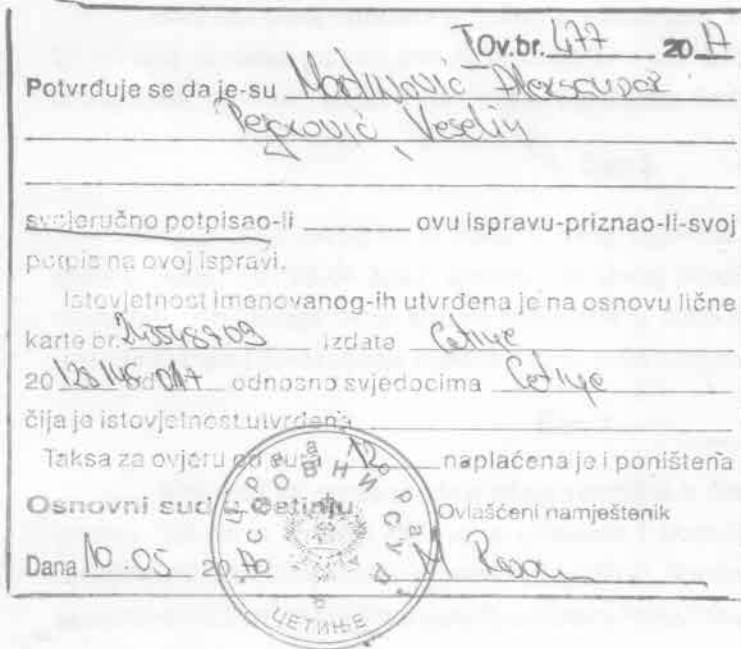 Ov.br. 477 20 17
Potvrđuje se da je-su Martinović Aleksandar
Petrović Veselin
svojeručno potpisao-li ovu ispravu-priznao-li-svoj
potpis na ovoj ispravi.
Istovjetnost imenovanog-ih utvrđena je na osnovu lične
karte br. izdata Cetinje
20 odnosno svjedocima Cetinje
čija je istovjetnost utvrđena
Taksa za ovjeru od eura naplaćena je i poništena
Osnovni sud u Cetinju Ovlašćeni namještenik
Dana 10.05 20
ЦЕТИЊЕ